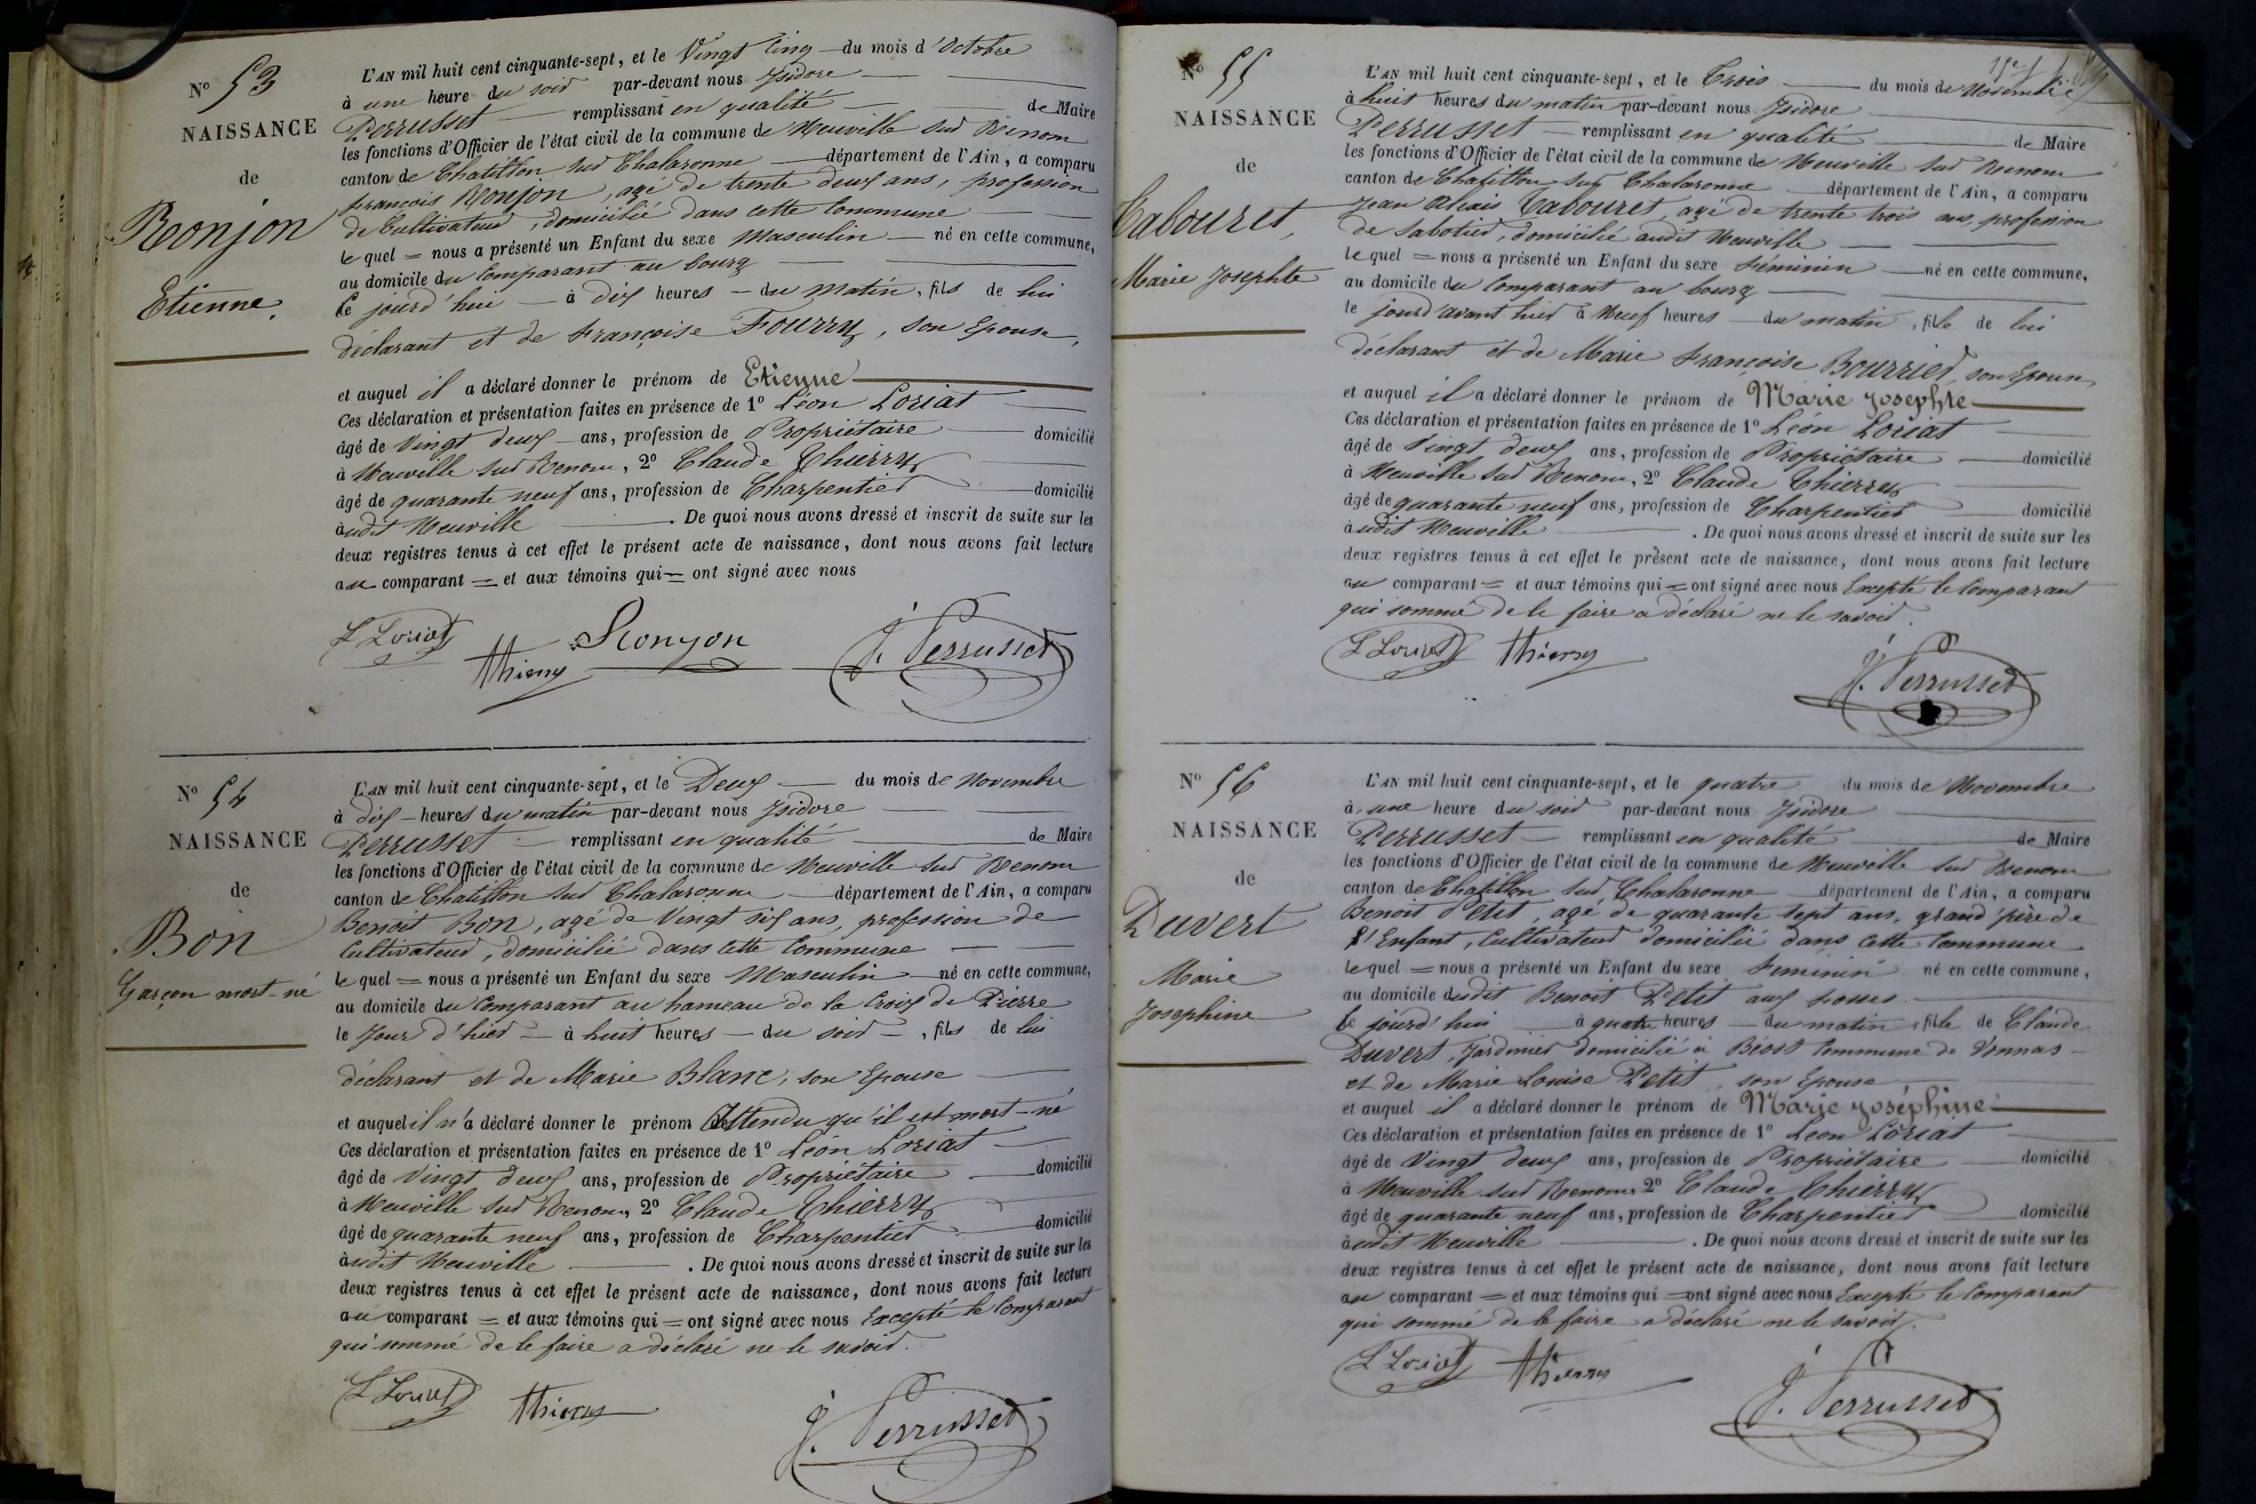 N° 53
NAISSANCE
de
Ronjon
Etienne.
L'AN mil huit cent cinquante-sept, et le Vingt Cinq du mois d'Octobre
à une heure du soir par-devant nous Isidore
Perrusset remplissant en qualité de Maire
les fonctions d'Officier de l'état civil de la commune de Neuville sur Renom
canton de Chatillon sur Chalaronne département de l'Ain, a comparu
françois Ronjon, agé de trente deux ans, profession
de Cultivateur, domicilié dans cette Commune
le quel = nous a présenté un Enfant du sexe Masculin né en cette commune,
au domicile du Comparant au bourg
Ce jourd'hui à dix heures du matin, fils de lui
déclarant et de françoise Fourry, son Epouse,
et auquel il a déclaré donner le prénom de Etienne
Ces déclaration et présentation faites en présence de 1° Léon Loriat
âgé de Vingt deux ans, profession de Propriétaire domicilié
à Neuville sur Renom, 2° Claude Thierry
âgé de quarante neuf ans, profession de Charpentier domicilié
audit Neuville . De quoi nous avons dressé et inscrit de suite sur les
deux registres tenus à cet effet le présent acte de naissance, dont nous avons fait lecture
au comparant = et aux témoins qui = ont signé avec nous
L Loriat Thierry Ronjon J. Perrusset
N° 54
NAISSANCE
de
Bon
Garçon mort-né
L'AN mil huit cent cinquante-sept, et le Deux du mois de Novembre
à dix heures du matin par-devant nous Isidore
Perrusset remplissant en qualité de Maire
les fonctions d'Officier de l'état civil de la commune de Neuville sur Renom
canton de Chatillon sur Chalaronne département de l'Ain, a comparu
Benoit Bon, agé de Vingt six ans, profession de
Cultivateur, domicilié dans cette Commune
le quel = nous a présenté un Enfant du sexe Masculin né en cette commune,
au domicile du Comparant au hameau de la Croix de Pierre
le Jour d'hier à huit heures du soir, fils de lui
déclarant et de Marie Blanc, son Epouse
et auquel il n'a déclaré donner le prénom Attendu qu'il est mort-né
Ces déclaration et présentation faites en présence de 1° Léon Loriat
âgé de Vingt deux ans, profession de Propriétaire domicilié
à Neuville sur Renom, 2° Claude Thierry
âgé de quarante neuf ans, profession de Charpentier domicilié
audit Neuville . De quoi nous avons dressé et inscrit de suite sur les
deux registres tenus à cet effet le présent acte de naissance, dont nous avons fait lecture
au comparant = et aux témoins qui = ont signé avec nous Excepté le Comparant
qui sommé de le faire a déclaré ne le savoir.
L Loriat Thierry J. Perrusset
N° 55
NAISSANCE
de
Tabouret,
Marie Josephte
L'AN mil huit cent cinquante-sept, et le Trois du mois de Novembre
à huit heures du matin par-devant nous Isidore
Perrusset remplissant en qualité de Maire
les fonctions d'Officier de l'état civil de la commune de Neuville sur Renom
canton de Chatillon sur Chalaronne département de l'Ain, a comparu
Jean Tabouret, agé de trente trois ans, profession
de Sabotier, domicilié audit Neuville
le quel = nous a présenté un Enfant du sexe féminin né en cette commune,
au domicile du Comparant au bourg
le jour d'avant hier à Neuf heures du matin, fille de lui
déclarant et de Marie françoise Bourrier, son Epouse,
et auquel il a déclaré donner le prénom de Marie Josephte
Ces déclaration et présentation faites en présence de 1° Léon Loriat
âgé de Vingt deux ans, profession de Propriétaire domicilié
à Neuville sur Renom, 2° Claude Thierry
âgé de quarante neuf ans, profession de Charpentier domicilié
audit Neuville . De quoi nous avons dressé et inscrit de suite sur les
deux registres tenus à cet effet le présent acte de naissance, dont nous avons fait lecture
au comparant = et aux témoins qui = ont signé avec nous Excepté le Comparant
qui sommé de le faire a déclaré ne le savoir.
L Loriat Thierry J. Perrusset
N° 56
NAISSANCE
de
Duvert
Marie
Josephine
L'AN mil huit cent cinquante-sept, et le quatre du mois de Novembre
à une heure du soir par-devant nous Isidore
Perrusset remplissant en qualité de Maire
les fonctions d'Officier de l'état civil de la commune de Neuville sur Renom
canton de Chatillon sur Chalaronne département de l'Ain, a comparu
Benoit Petit, agé de quarante sept ans, grand'père de
l'Enfant, Cultivateur domicilié dans cette Commune
le quel = nous a présenté un Enfant du sexe féminin né en cette commune,
au domicile dudit Benoit Petit aux fosses
Ce jourd'hui à quatre heures du matin, fille de Claude
Duvert, Jardinier domicilié à Béost Commune de Vonnas
et de Marie Louise Petit, son Epouse
et auquel il a déclaré donner le prénom de Marie Joséphine
Ces déclaration et présentation faites en présence de 1° Léon Loriat
âgé de Vingt deux ans, profession de Propriétaire domicilié
à Neuville sur Renom, 2° Claude Thierry
âgé de quarante neuf ans, profession de Charpentier domicilié
audit Neuville . De quoi nous avons dressé et inscrit de suite sur les
deux registres tenus à cet effet le présent acte de naissance, dont nous avons fait lecture
au comparant = et aux témoins qui = ont signé avec nous Excepté le Comparant
qui sommé de le faire a déclaré ne le savoir.
L Loriat Thierry J. Perrusset